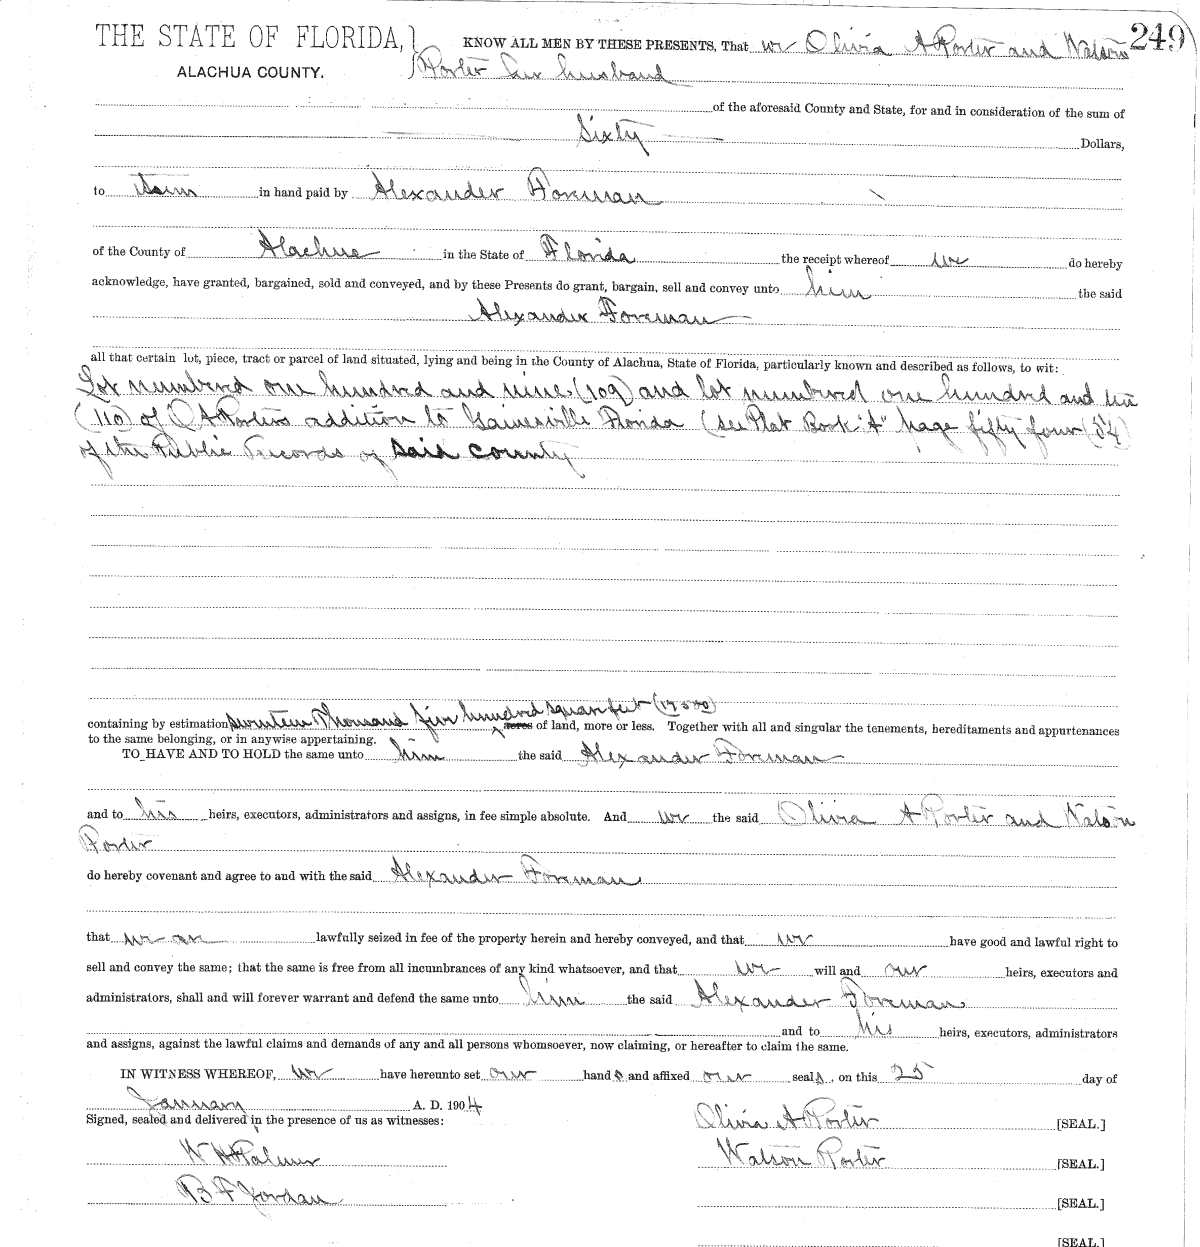 THE STATE OF FLORIDA, KNOW ALL MEN BY THESE PRESENTS, That we Olivia A Porter and Watson 249
ALACHUA COUNTY. Porter her husband
of the aforesaid County and State, for and in consideration of the sum of
Sixty Dollars,
to in hand paid by Alexander Foreman
of the County of Alachua in the State of Florida the receipt whereof we do hereby
acknowledge, have granted, bargained, sold and conveyed, and by these Presents do grant, bargain, sell and convey unto him the said
Alexander Foreman
all that certain lot, piece, tract or parcel of land situated, lying and being in the County of Alachua, State of Florida, particularly known and described as follows, to wit:
Lot numbered one hundred and nine (109) and lot numbered one hundred and ten
(110) of O A Porters addition to Gainesville Florida (see Plat Book "A" page fifty four (54)
of the Public Records of said county
containing by estimation seventeen Thousand five hundred square feet (17500) acres of land, more or less. Together with all and singular the tenements, hereditaments and appurtenances
to the same belonging, or in anywise appertaining.
TO HAVE AND TO HOLD the same unto him the said Alexander Foreman
and to his heirs, executors, administrators and assigns, in fee simple absolute. And we the said Olivia A Porter and Watson
Porter
do hereby covenant and agree to and with the said Alexander Foreman
that we are lawfully seized in fee of the property herein and hereby conveyed, and that we have good and lawful right to
sell and convey the same; that the same is free from all incumbrances of any kind whatsoever, and that we will and our heirs, executors and
administrators, shall and will forever warrant and defend the same unto him the said Alexander Foreman
and to his heirs, executors, administrators
and assigns, against the lawful claims and demands of any and all persons whomsoever, now claiming, or hereafter to claim the same.
IN WITNESS WHEREOF, we have hereunto set our hand s and affixed our seal s, on this 25 day of
January A. D. 1904
Signed, sealed and delivered in the presence of us as witnesses: Olivia A Porter [SEAL.]
W H Palmer Watson Porter [SEAL.]
B F Jordan [SEAL.]
[SEAL.]